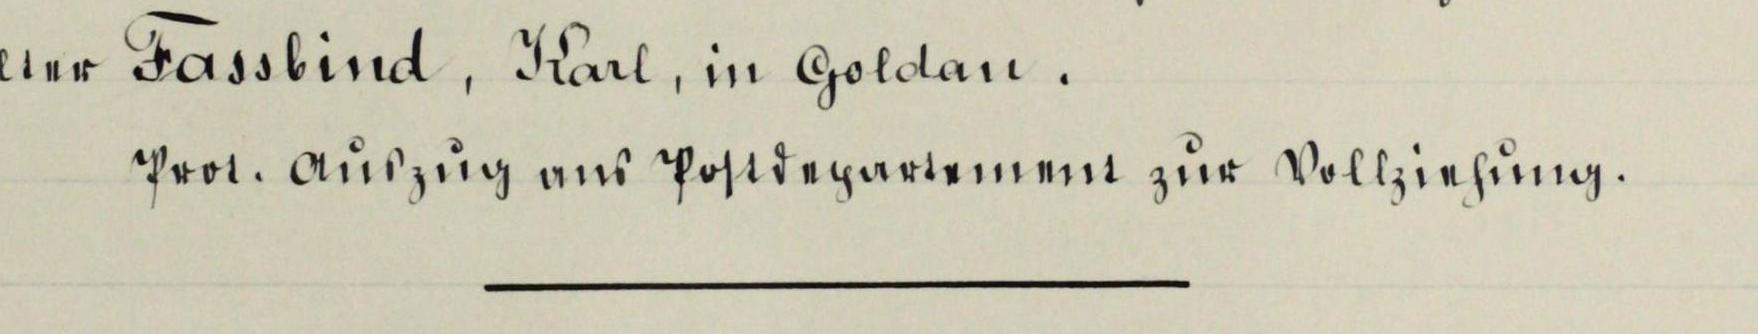 Fassbind, Karl, in Goldau.
Prot. Auszug ans Postdepartement zur Vollziehung.